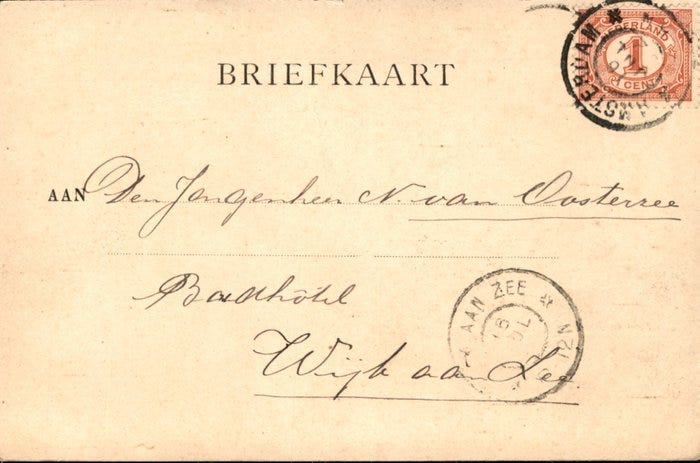 AMSTERDAM
NEDERLAND
1
CENT
BRIEFKAART
AAN Den Jongenheer N. van Oosterzee
Badhôtel
AAN ZEE
Wijk aan Zee